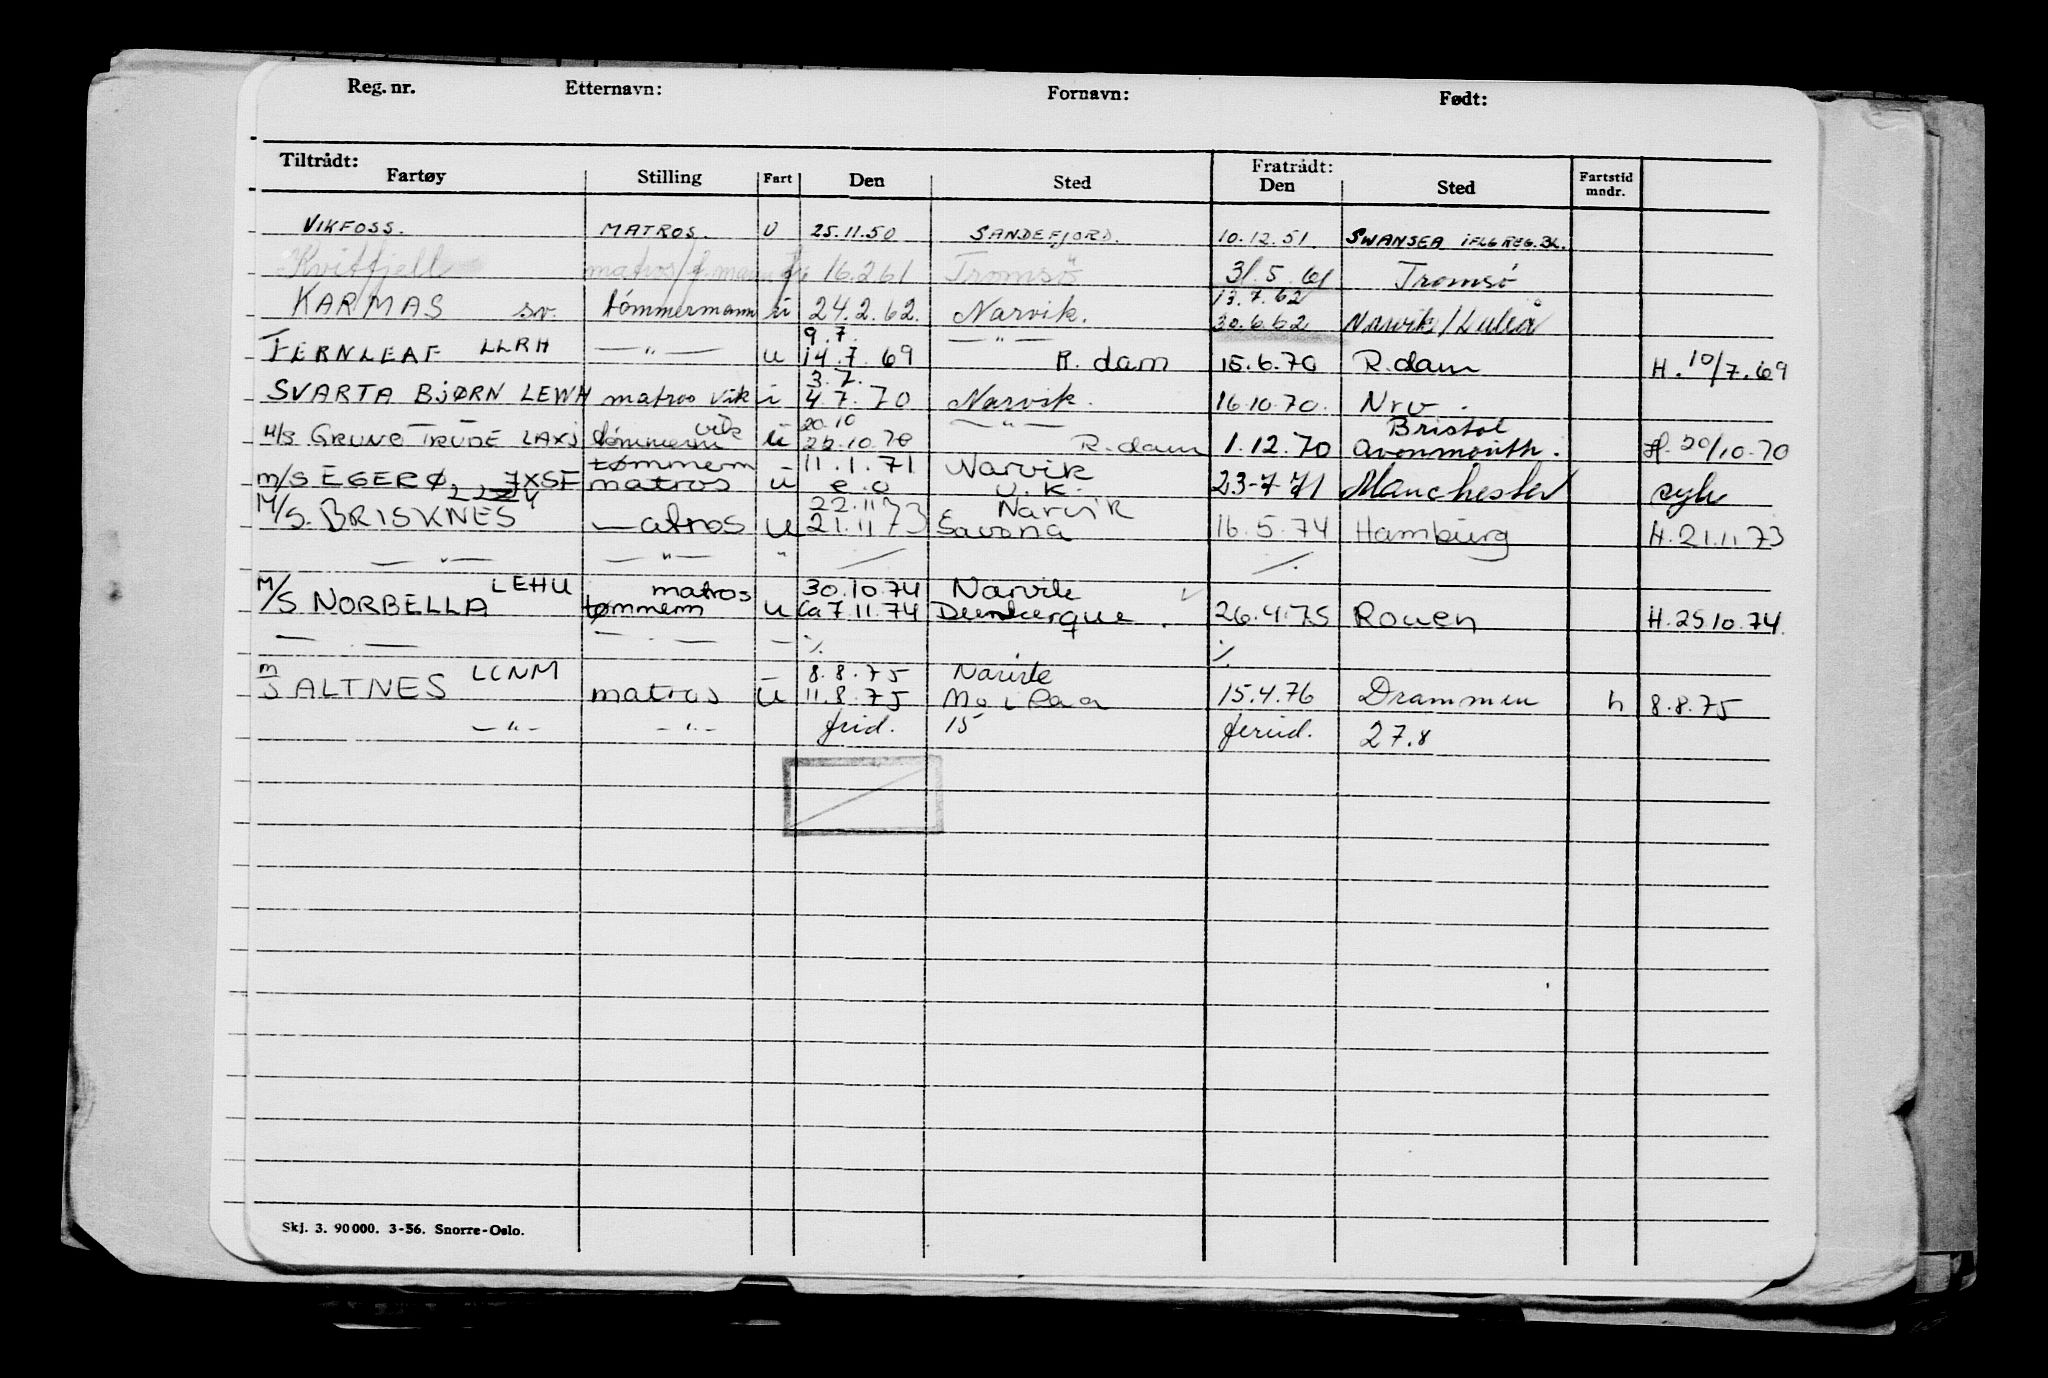 Reg. nr. Etternavn: Fornavn: Født:
Tiltrådt: Fratrådt:
Fartøy Stilling Fart Den Sted Den Sted Fartstid mndr.
VIKFOSS. MATROS. U 25.11.50 SANDEFJORD. 10.12.51. SWANSEA IFLG REG. BL.
Kvitfjell matros/ 16.2 61 Tromsö 31.5.61 Tromsö
13.7.62
KARMAS sv. tömmermann u 24.2.62. Narvik. 30.6.62 Narvik/Luleå
9.7. — " —
FERNLEAF LLRH — " — u 14.7.69 R.dam 15.6.70 R.dam H. 10/7.69
3.7.
SVARTA BJØRN LEWH matros vik i 4.7.70 Narvik. 16.10.70. Nrv.
vik 20.10 — " — Bristol
H/S GRUNO TRUDE LAXJ tømmerm u 22.10.70 R.dam 1.12.70 avonmouth. H. 20/10.70
tømmerm 11.1.71 Narvik
M/S EGERØ JXSF matros u e.o U.K. 23-7-71 Manchester syk
22.11 73 Narvik
M/S. BRISKNES —atros u 21.11 73 Savona 16.5.74 Hamburg H. 21.11 73
— " — — " — " ⁄ ⁄.
LEHU matros 30.10.74 Narvik
M/S NORBELLA tømmerm u Ca 7.11.74 Dunkerque. 26.4.75 Rouen H. 25 10.74.
— — — — — ⁒ ⁒
LCNM 8.8.75 Narvik
m/S ALTNES matros u 11.8.75 15.4.76 Drammen h 8.8.75
— " — — " — frid. 15 feriid. 27.8
Skj. 3. 90 000. 3-56. Snorre-Oslo.